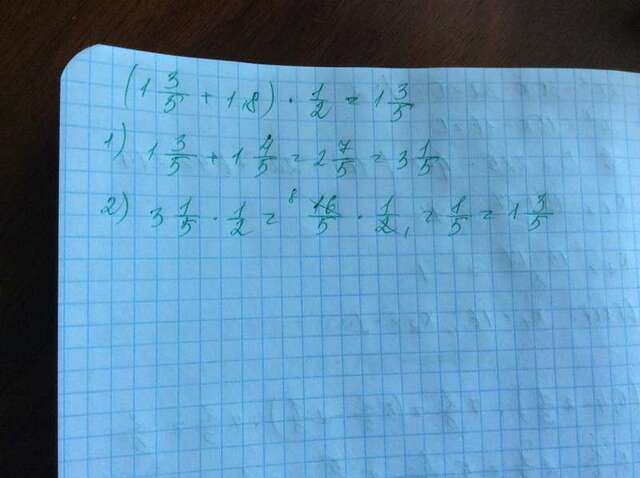 (1 3/5 + 1,8) · 1/2 = 1 3/5
1) 1 3/5 + 1 4/5 = 2 7/5 = 3 1/5
2) 3 1/5 · 1/2 = 8 16/5 · 1/2, = 1/5 = 1 3/5